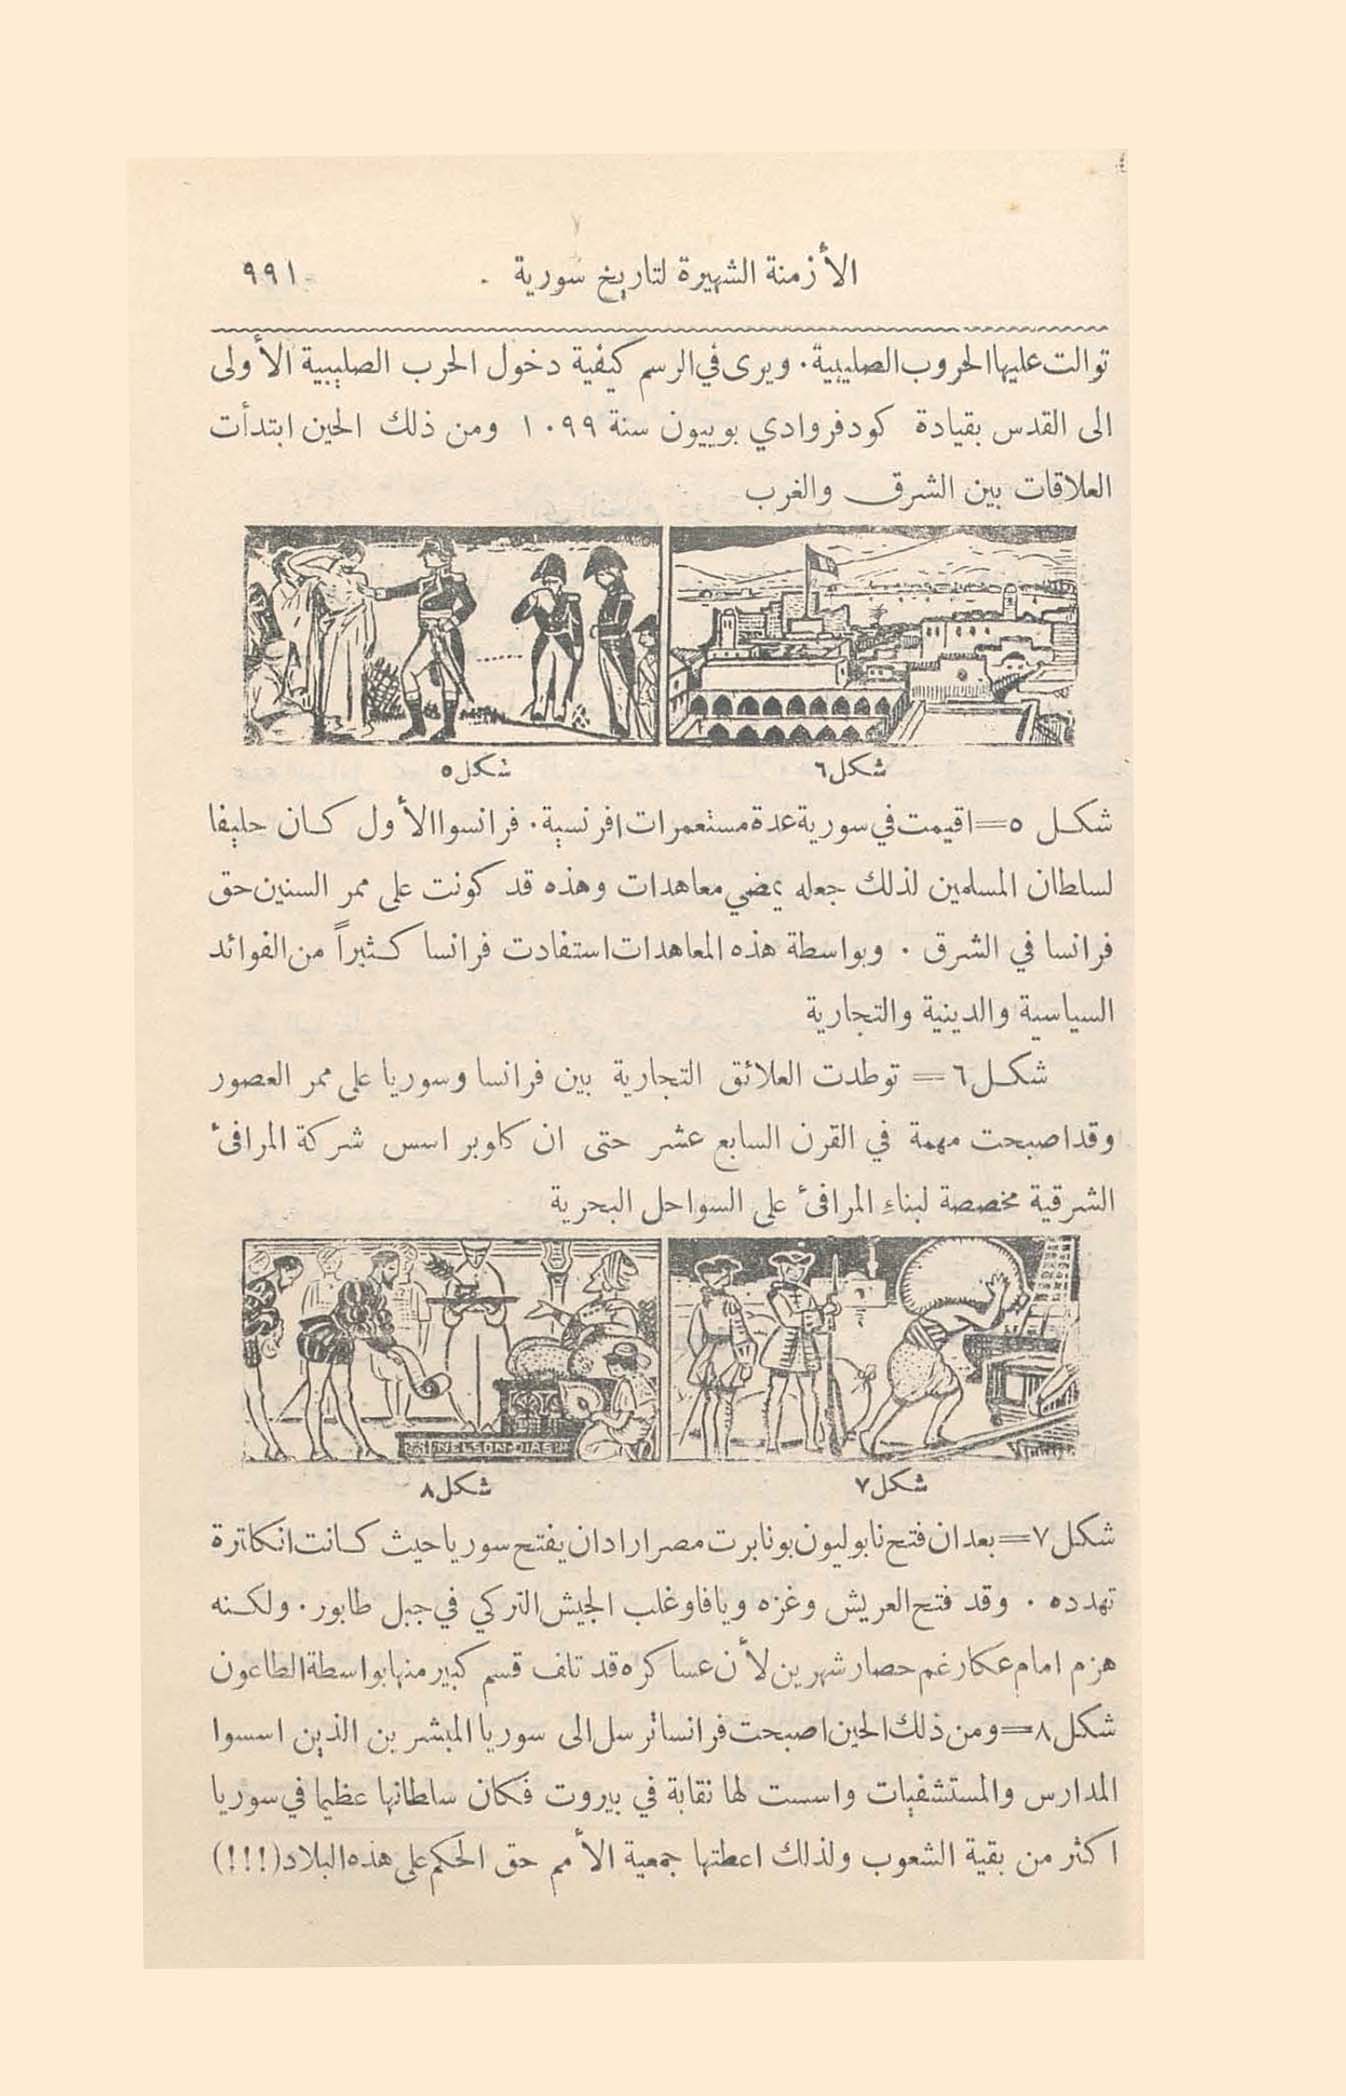 الأزمنة الشهيرة لتاريخ سورية . ٩٩١
توالت عليها الحروب الصليبية . ويرى في الرسم كيفية دخول الحرب الصليبية الأولى
الى القدس بقيادة كودفروادي بوييون سنة ١٠٩٩ ومن ذلك الحين ابتدأت
العلاقات بين الشرق والغرب
شكل ٦ شكل ٥
شكل ٥ = اقيمت في سورية عدة مستعمرات افرنسية . فرانسوا الأول كان حليفا
لسلطان المسلمين لذلك جعله يمضي معاهدات وهذه قد كونت على ممر السنين حق
فرانسا في الشرق . وبواسطة هذه المعاهدات استفادت فرانسا كثيراً من الفوائد
السياسية والدينية والتجارية
شكل ٦ = توطدت العلائق التجارية بين فرانسا وسوريا على ممر العصور
وقد اصبحت مهمة في القرن السابع عشر حتى ان كاوبر اسس شركة المرافئ
الشرقية مخصصة لبناء المرافئ على السواحل البحرية
NELSON-DIAS
شكل ٧ شكل ٨
شكل ٧ = بعد ان فتح نابوليون بونابرت مصر اراد ان يفتح سوريا حيث كانت انكلترة
تهدده . وقد فتح العريش وغزه ويافا وغلب الجيش التركي في جبل طابور . ولكنه
هزم امام عكا رغم حصار شهرين لأن عساكره قد تلف قسم كبير منها بواسطة الطاعون
شكل ٨ = ومن ذلك الحين اصبحت فرانسا ترسل الى سوريا المبشرين الذين اسسوا
المدارس والمستشفيات واسست لها نقابة في بيروت فكان سلطانها عظيما في سوريا
اكثر من بقية الشعوب ولذلك اعطتها جمعية الأمم حق الحكم على هذه البلاد (!!!)